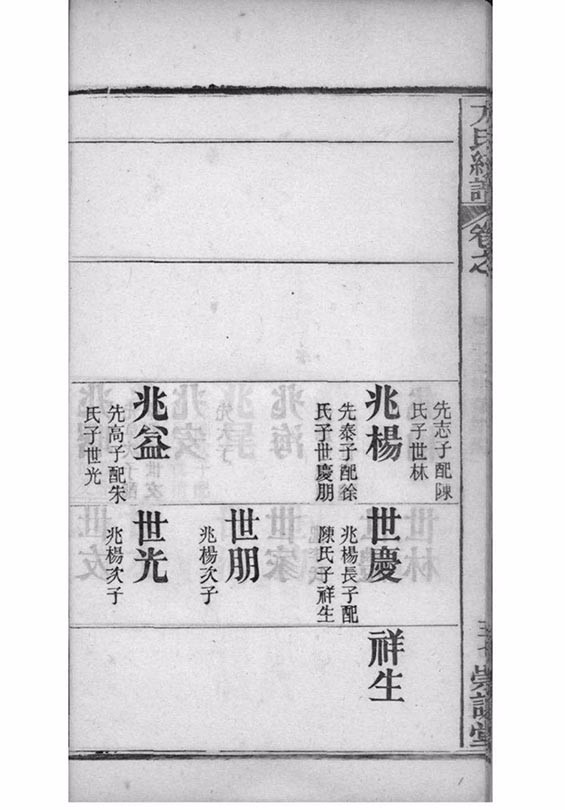 卷之
先志子配陳
氏子世林
兆楊
先泰子配徐
氏子世慶朋
兆益
先高子配朱
氏子世光
世慶
兆楊長子配
陳氏子祥生
世朋
兆楊次子
世光
兆楊次子
祥生